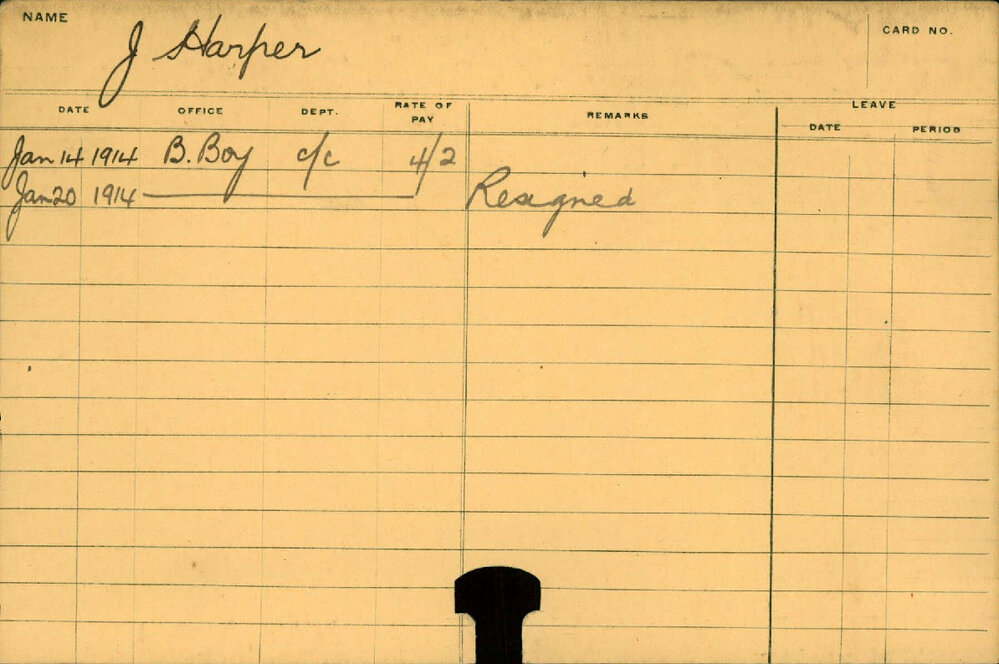 NAME J Harper CARD NO.
DATE OFFICE DEPT. RATE OF PAY REMARKS LEAVE
DATE PERIOD
Jan 14 1914 B. Boy c/c 4/2
Jan 20 1914 Resigned